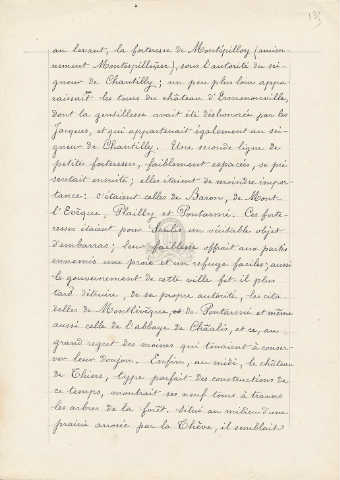 au levant, la forteresse de Montépilloy (ancien-
nement Montespilleüer), sous l'autorité du sei-
gneur de Chantilly ; un peu plus loin appa-
raissait les tours du château d'Ermenonville,
dont la gentillesse avait été déshonorée par les
Jacques, et qui appartenait également au sei-
gneur de Chantilly. Une seconde ligne de
petites forteresses, faiblement espacées, se pré
sentait ensuite ; elles étaient de moindre impor-
tance : c'étaient celles de Baron, de Mont
l'Evêque, Plailly et Pontarmé. Ces forte-
resses étaient pour Senlis un véritable objet
d'embarras ; leur faiblesse offrait aux partis
ennemis une proie et un refuge faciles ; aussi
le gouvernement de cette ville fit il plus
tard détruire, de sa propre autorité, les cita-
delles de Montlévêque, de Pontarmé et même
aussi celle de l'abbaye de Chaâlis, et ce, au
grand regret des moines qui tenaient à conser-
ver leur donjon. Enfin, au midi, le château
de Thiers, type parfait des constructions de
ce temps, montrait ses neuf tours à travers
les arbres de la forêt. Situé au milieu d'une
prairie arrosée par la Thève, il semblait